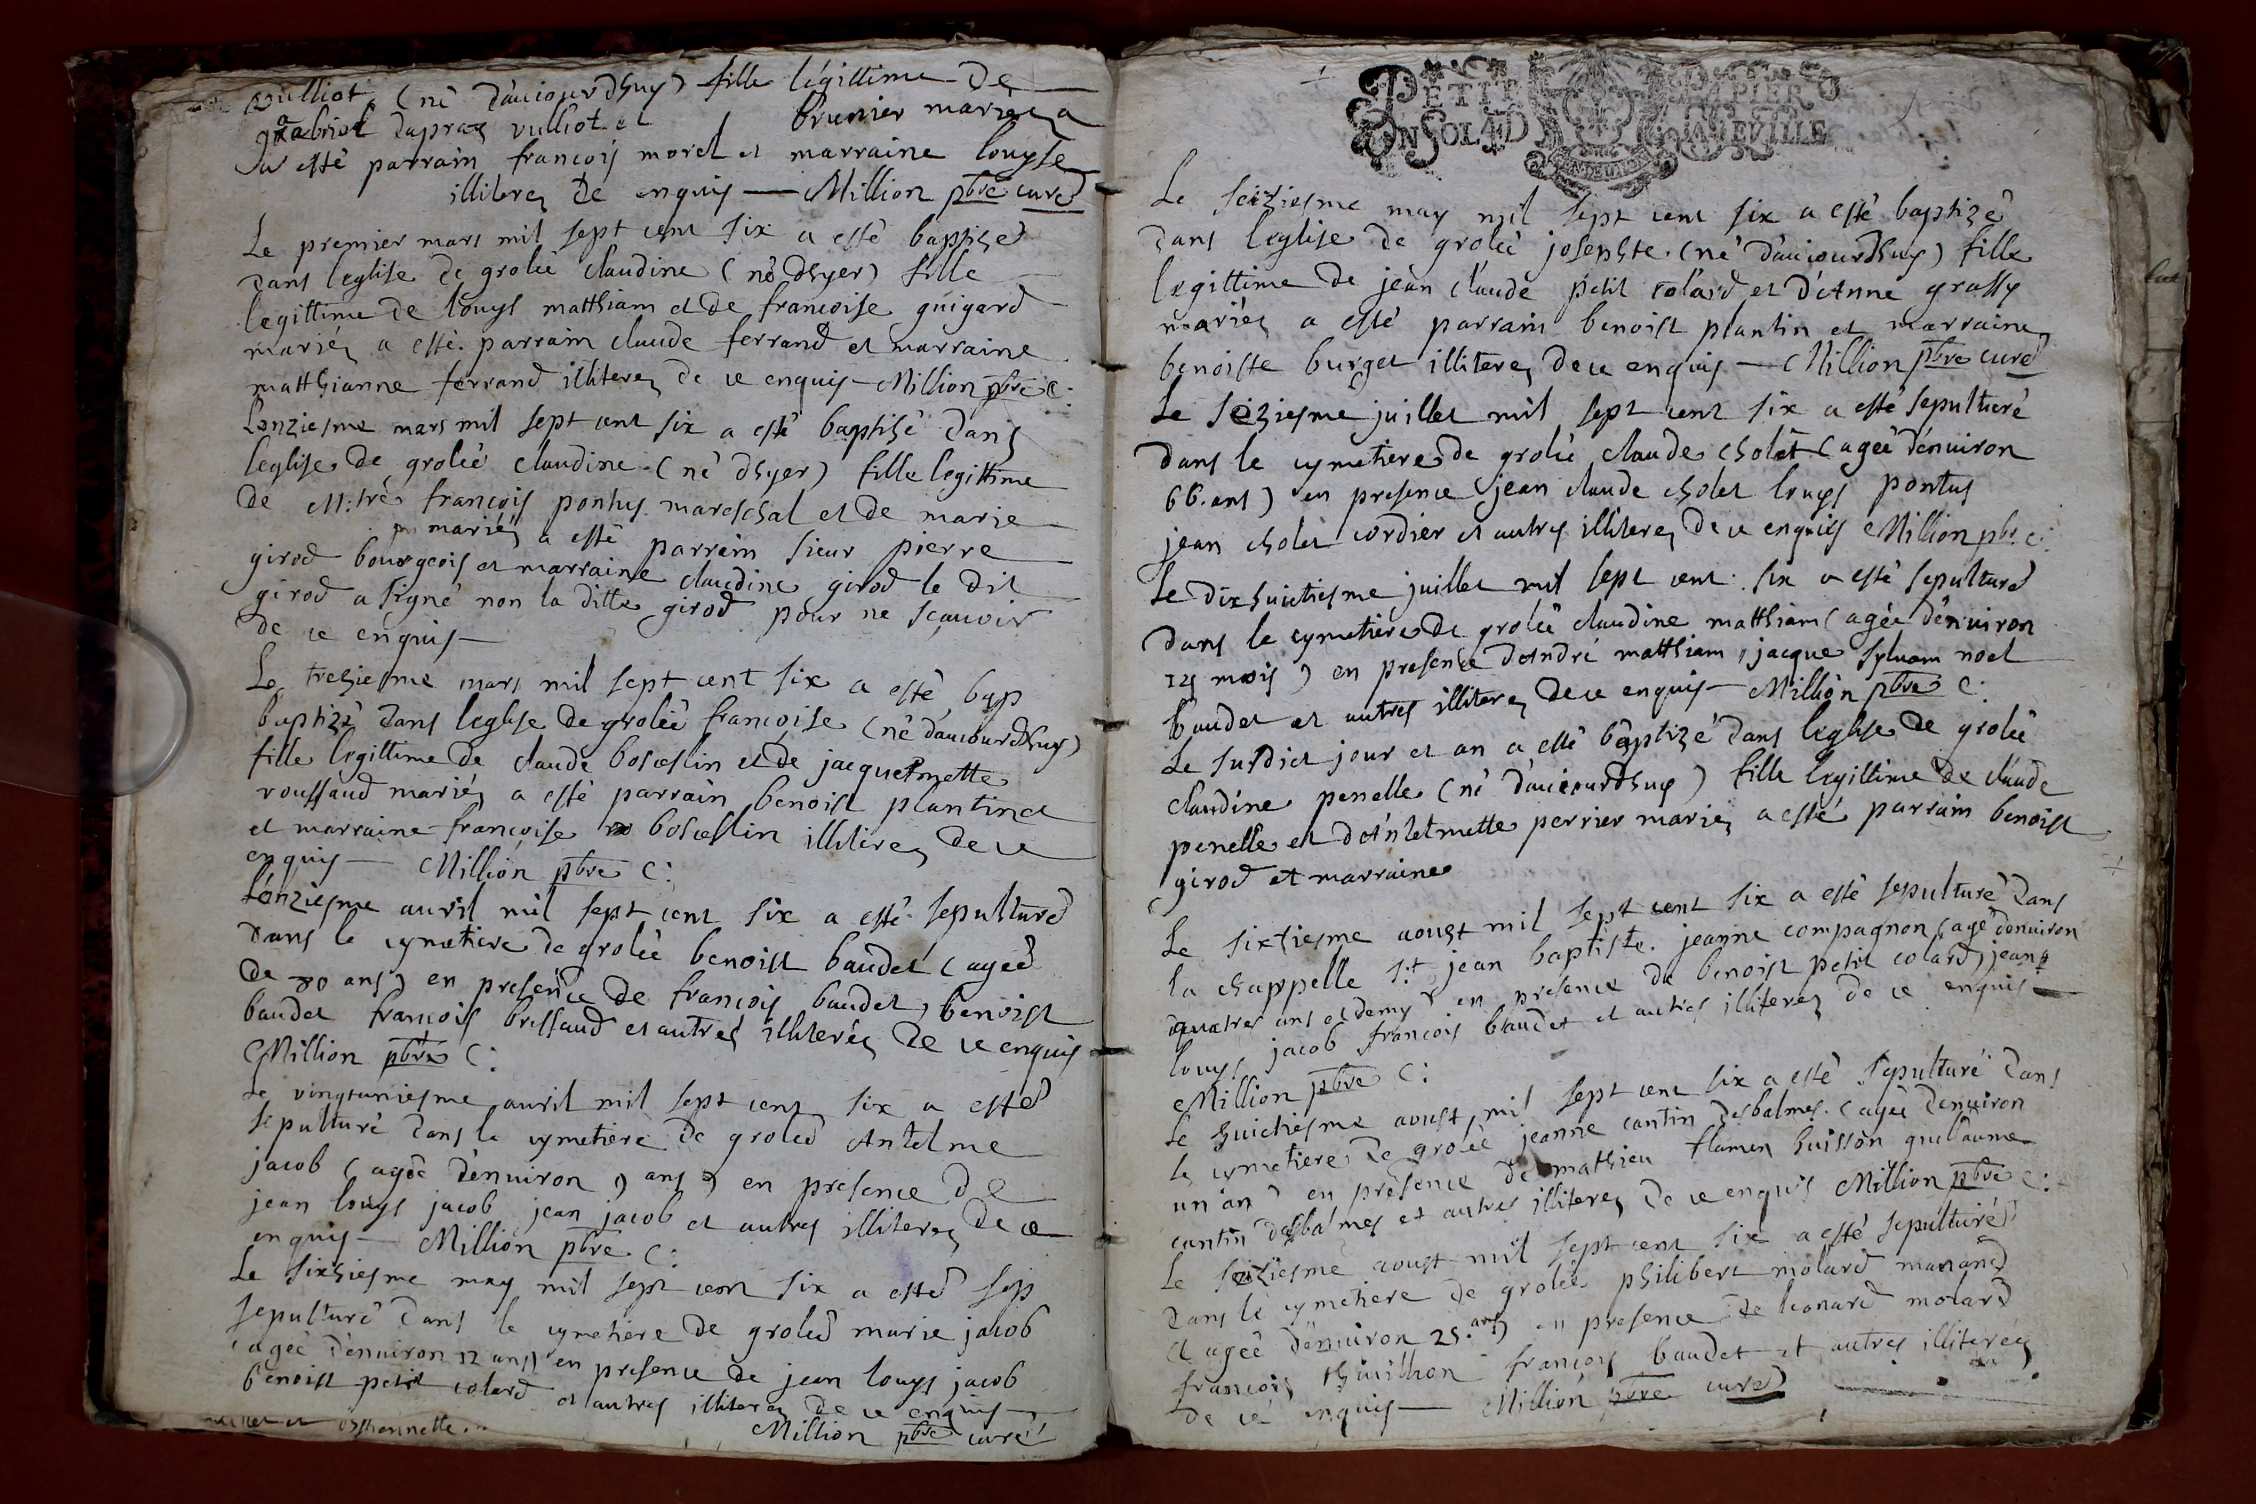 vulliot (né d'aujourdhuy) fille légittime de
gabriel dupraz vulliot et brunier mariez a
esté parrain francois morel et marraine louyse
illiterez de enquis — Million pbre curé
Le premier mars mil sept cent six a esté baptizé
dans leglise de grolée claudine (né dhyer) fille
legittime de louys matthiam et de francoise guigard
mariéz a esté parrain claude ferrand et marraine
matthianne ferrand illiterez de ce enquis — Million pbre C:
Lonziesme mars mil sept cent six a esté baptisé dans
leglise de grolée claudine (né dhyer) fille legittime
de M:tre françois pontus mareschal et de marie
mariéz a esté parrain sieur pierre
girod bourgeois et marraine claudine girod le dit
girod a signé non la ditte girod pour ne scauoir
de ce enquis —
Le treziesme mars mil sept cent six a esté bap
baptizé dans leglise de grolée francoise (né d'aujourdhuy)
fille legittime de claude boscslin et de jacquemette
roussaud mariéz a esté parrain benoist plantin et
et marraine francoise boscslin illiterez de ce
enquis — Million pbre C:
L'onziesme auril mil sept cent six a esté sepulturé
dans le cymetiere de grolée benoist baudet (ageé
de 80 ans) en presence de françois baudet, benoist
baudet francois bressaud et autres illiteréz de ce enquis
Million pbre C:
Le vingtuniesme auril mil sept cent six a esté
sepulturé dans le cymetiere de grolée Antelme
jacob (ageé d'enuiron 9 ans) en presence de
jean louys jacob jean jacob et autres illiterez de ce
enquis — Million pbre C:
Le sixziesme may mil sept cent six a esté sep
sepulturé dans le cymetiere de grolée marie jacob
(ageé d'enuiron 12 ans) en presence de jean louys jacob
benoist petit colard et autres illiterez de ce enquis —
Million pbre curé
PETIT PAPIER
UN SOL 4 D LA FEVILLE
Le seiziesme may mil sept cent six a esté baptizé
dans leglise de grolée josephte (né d'aujourdhuy) fille
legittime de jean claude petit colard et d'Anne grassy
mariéz a esté parrain benoist plantin et marraine
benoiste burget illiterez de ce enquis — Million pbre curé
Le seiziesme juillet mil sept cent six a esté sepulturé
dans le cymetiere de grolée claude cholet (ageé d'enuiron
66. ans) en presence jean claude cholet louys pontus
jean cholet cordier et autres illiterez de ce enquis Million pbr. C:
Le dixhuictiesme juillet mil sept cent six a esté sepulturé
dans le cymetiere de grolée claudine matthiam (ageé d'enuiron
mois) en presence d'André matthiam, jacque syluam noel
baudet et autres illiterez de ce enquis — Million pbre C:
Le susdict jour et an a esté baptizé dans leglise de grolée
claudine penelle (né d'aujourdhuy) fille legittime de claude
penelle et d'Antelmette perrier mariéz a esté parrain benoist
girod et marraine
Le sixziesme aoust mil sept cent six a esté sepulturé dans
la chappelle S:t jean baptiste jeanne compagnon (agé denuiron
quatres ans et demy) en presence de benoist petit colard, jean
louys jacob francois baudet et autres illiterez de ce enquis —
Million pbre C:
Le huictiesme aoust mil sept cent six a esté sepulturé dans
le cymetiere de grolée jeanne cantin desbalmes (ageé denuiron
un an) en presence de mathieu flamen huisson guillaume
cantin desbalmes et autres illiterez de ce enquis Million pbre C:
Le seiziesme aoust mil sept cent six a esté sepulturé
dans le cymetiere de grolée philibert molard manand
(ageé d'enuiron 25. ans) en presence de leonard molard
francois thuillion françois baudet et autres illiteréz
de ce enquis — Million pbre curé